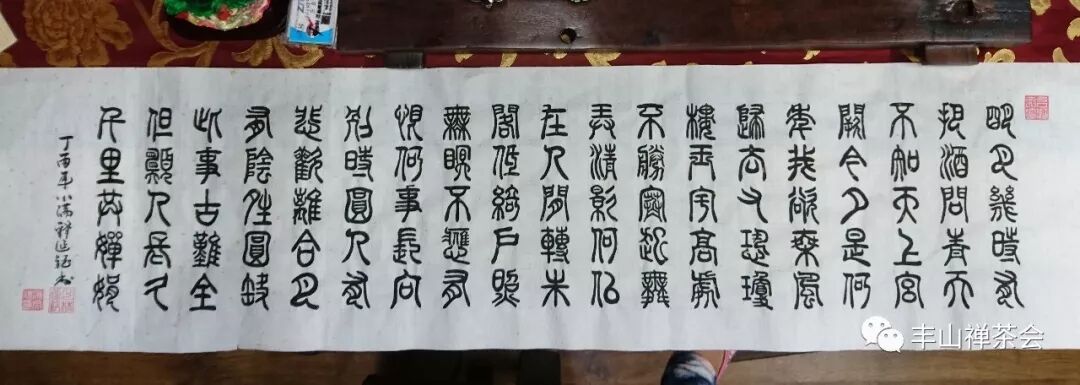 明月幾時有
把酒問青天
不知天上宮
闕今夕是何
年我欲乘風
歸去又恐瓊
樓玉宇高處
不勝寒起舞
弄清影何似
在人間轉朱
閣低綺戶照
無眠不應有
恨何事長向
別時圓人有
悲歡離合月
有陰晴圓缺
此事古難全
但願人長久
千里共嬋娟
丁酉年小满
丰山禅茶会